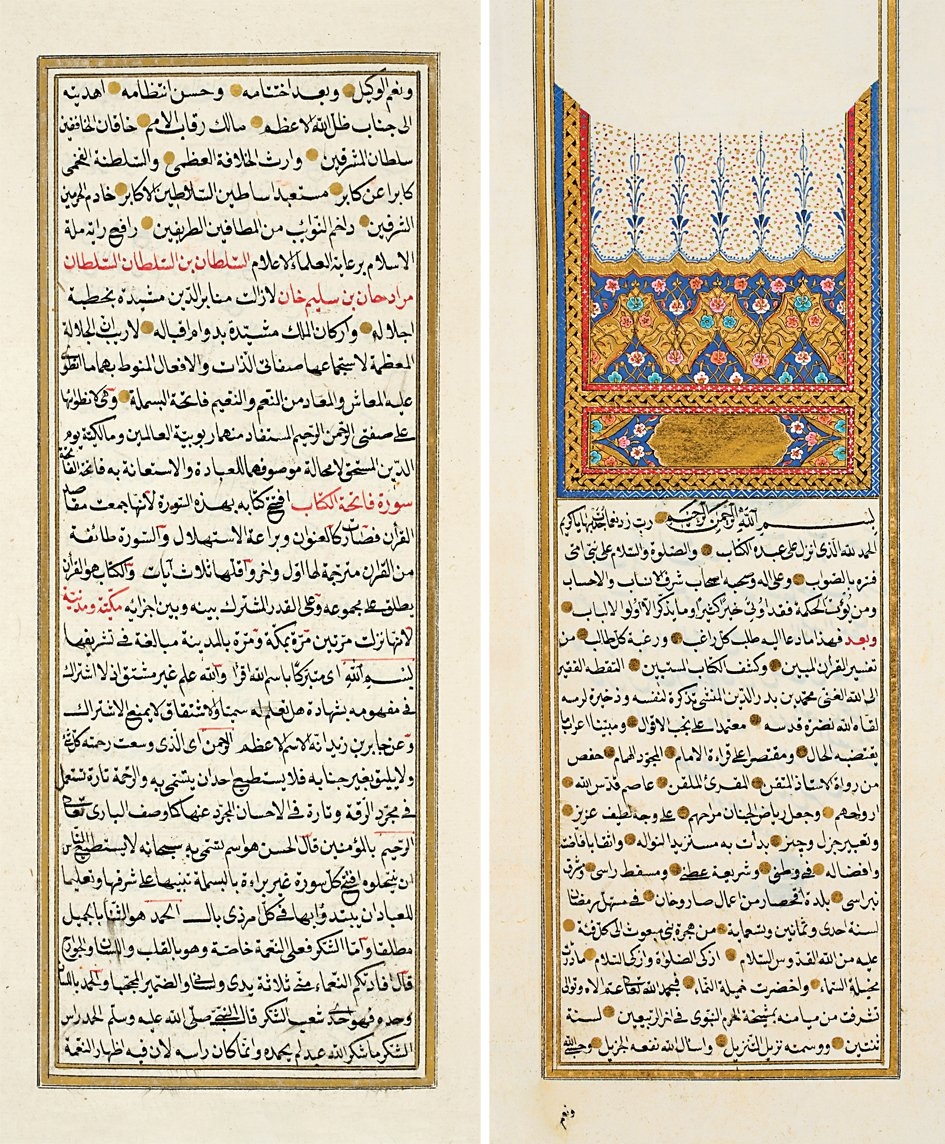 بسم الله الرحمن الرحيم رب زدني
الحمد لله الذي انزل على عبده الكتاب والصلوة والسلام على نبي
وعلى اله وصحبه اصحاب شرف الانساب والاحساب
ومن يؤت الحكمة فقد اوتي خيرا كثيرا وما يذكر الا اولوا الالباب
وبعد فهذا ما دعا اليه طلب كل راغب ورغبة كل طالب من
تفسير القران المبين وكشف الكتاب المستبين النقطه الفقير
الى الله الغني محمد بن بدر الدين المنشي تذكرة لنفسه وذخيرة لرمسه
لقاه الله نضرة قدسه معتمدا على نخب الاقوال ومبينا اعراب ما
يقتضيه الحال ومقتصرا على قراءة الامام المجود الهمام حفص
من رواة الاستاذ المتقن المقرئ الملقن عاصم قدس الله
ارواحهم وجعل رياض الجنان مراحهم على وجه لطيف عزيز
وتعبير جزل وجيز بدأت به مستنزلا نواله واثقا بافاضة
وافضاله في وطني وشريعة عطني ومسقط راسي ومشرق
نبراسي بلدة اقحصار من اعمال صاروخان في مستهل رمضان
لسنة احدى وثمانين وتسعماية من هجرة نبي مبعوث الى كل فئة
عليه من الله القدوس السلام ازكى الصلوة وازكى السلام ما درت
مخيلة السماء واخضرت خميلة النماء فبحمد الله تعالى عم الاءه وتوالى
تشرفت من ميامنه بمشيخة الحرم النبوي في اخر الربيعين لسنة
ثنتين ووسمته تنزيل التنزيل واسال الله نفعه الجزيل وحسبي الله
ونعم
ونعم الوكيل وبعد اختتامه وحسن انتظامه اهديته
الى جناب ظل الله الاعظم مالك رقاب الامم خاقان الخافقين
سلطان المشرقين وارث الخلافة العظمى والسلطنة الفخمى
كابرا عن كابر مستعبد ساطين السلاطين الاكابر خادم الحرمين
الشرفين داحم النوايب من الطافين الطريفين رافع راية ملة
الاسلام برعاية العلماء الاعلام السلطان بن السلطان السلطان
مراد خان بن سليم خان لازالت منابر الدين مشيدة بخطبة
اجلاله واركان الملك مشيدة بدوام اقباله لا ريب ان الجلالة
المعظمة لاستجماعها صفاتي الذات والافعال المنوط بهما ما انطوى
عليه المعاش والمعاد من النعم والنعيم فاتحة البسملة وفي انطوائها
على صفتي الرحمن الرحيم المستفاد منهما ربوبية العالمين ومالكية يوم
الدين المستحق لا محالة موصوفهما للعبادة والاستعانة به فاتحة الفاتحة
سورة فاتحة الكتاب افتتح كتابه بهذه السورة لانها جمعت مقاصد
القرآن فصارت كالعنوان وبراعة الاستهلال والسورة طائفة
من القرآن مترجمة لها اول واخر واقلها ثلاث آيات والكتاب هو القرآن
يطلق على مجموعه وعلى القدر المشترك بينه وبين اجزائه مكية ومدنية
لانها نزلت مرتين مرة بمكة ومرة بالمدينة مبالغة في تشريفها
بسم الله اي متبركا باسم الله اقرا والله علم غير مشتق اذ لا اشتراك
في مفهومه بشهادة هل تعلم له سميا والاشتقاق لا يمنع الاشتراك
وعن جابر بن زيد انه الاسم الاعظم الرحمن اي الذي وسعت رحمته كل شيء
ولا يليق بغير جنابه فلا يستطيع احد ان يتسمى به والرحمة تارة تستعمل
في مجرد الرقة وتارة في الاحسان المجرد عنها كما وصف البارى تعالى
الرحيم بالمؤمنين قال الحسن هو اسم تسمى به سبحانه لا يستطيع الناس
ان ينتحلوه افتتح كل سورة غير براءة بالبسملة تنبيها على شرفها وتعليما
للعباد ان يبتدؤا بها في كل امر ذي بال الحمد هو الثنا بالجميل
مطلقا واما الشكر فعلى النعمة خاصة وهو بالقلب واللسان والجوارح
قال افادتكم النعماء مني ثلاثة يدي ولساني والضمير المحجبا والحمد باللسان
وحده فهو احدى شعب الشكر قال النبي صلى الله عليه وسلم الحمد راس
الشكر ما شكر الله عبد لم يحمده وانما كان راسه لان فيه اظهار النعمة